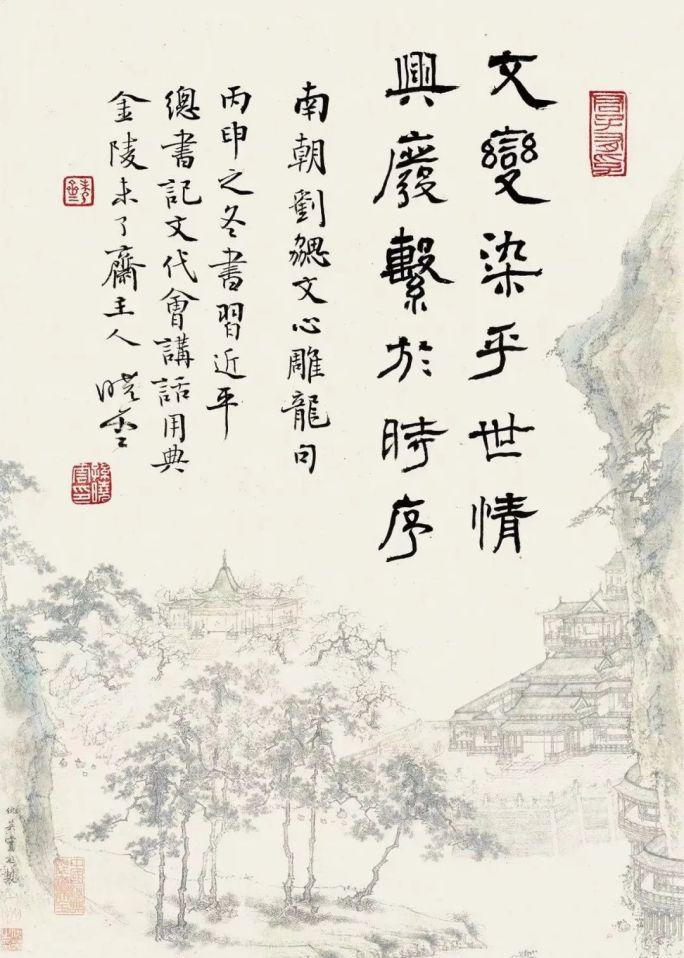 文變染乎世情
興廢繫於時序
南朝劉勰文心雕龍句
丙申之冬書習近平
總書記文代會講話用典
金陵未了齋主人 曉雲
孫曉雲印
仇英實父製